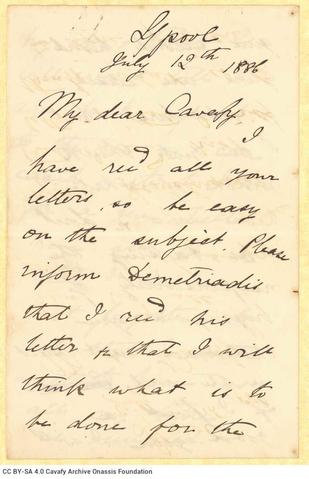 Lpool
July 12th 1886
My dear Cavafy
I
have recd all your
letters, so be easy
on the subject. Please
inform Demetriadis
that I recd his
letter & that I will
think what is to
be done for the
CC BY-SA 4.0 Cavafy Archive Onassis Foundation